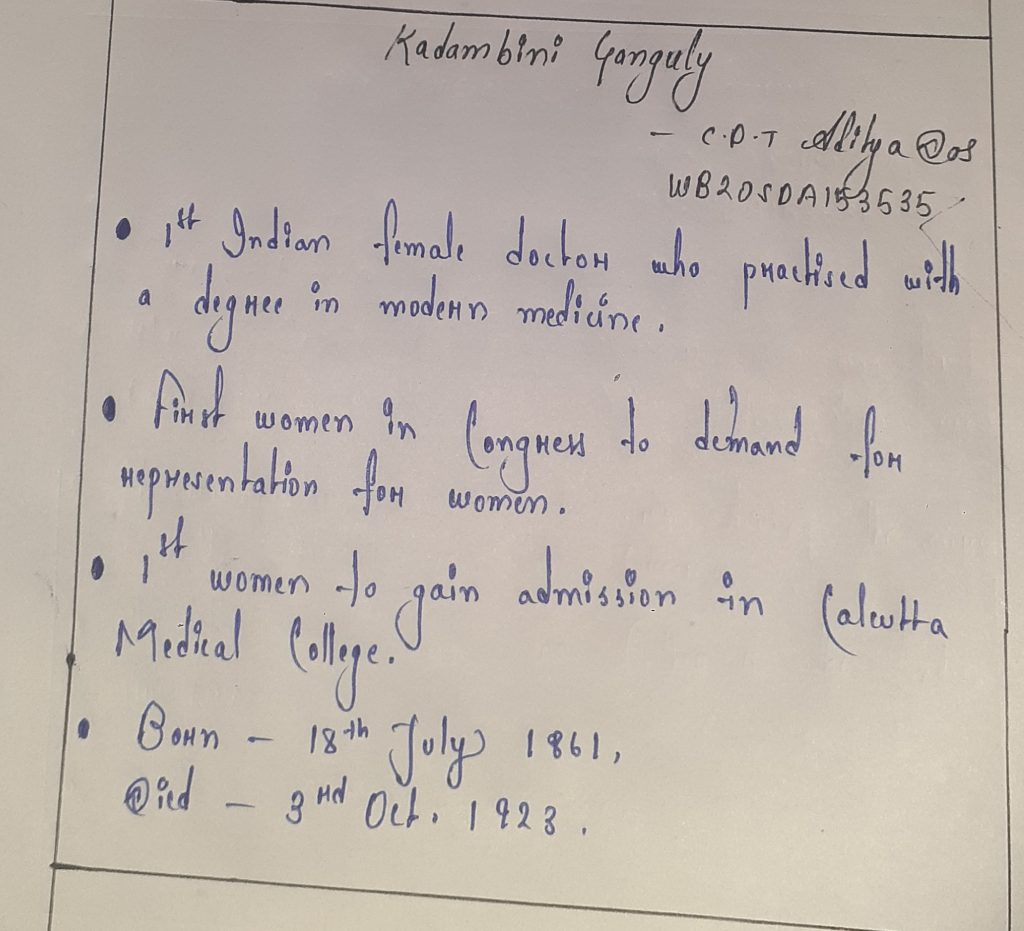 Kadambini Ganguly
- C.D.T Aditya Das
WB20SDA153535
• 1st Indian female doctor who practised with
a degree in modern medicine.
• First women in Congress to demand for
representation for women.
• 1st women to gain admission in Calcutta
Medical College.
• Born - 18th July 1861,
Died - 3rd Oct. 1923.